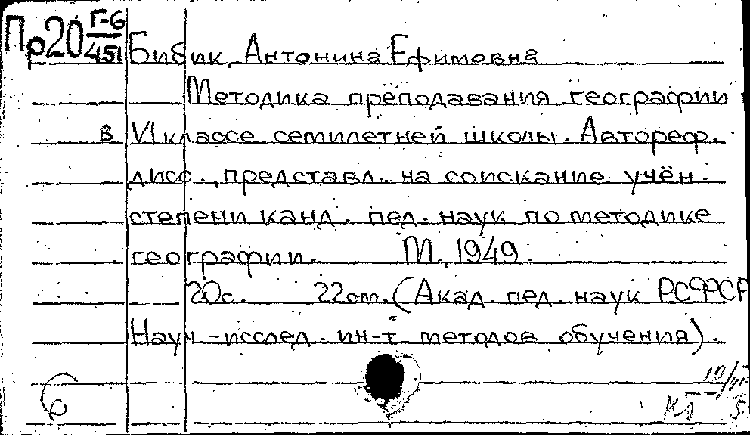 Пр20 Г-6/451
Бибик, Антонина Ефимовна
Методика преподавания географии
в VI классе семилетней школы. Автореф.
дисс., представл. на соискание учён.
степени канд. пед. наук по методике
географии. М, 1949.
20с. 22см. (Акад. пед. наук РСФСР
Науч-исслед. ин-т методов обучения).
б